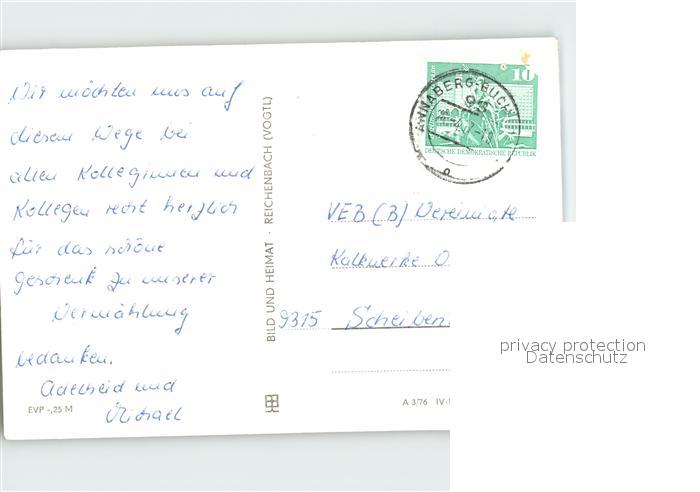 Wir möchten uns auf
diesem Wege bei
allen Kolleginnen und
Kollegen recht herzlich
für das schöne
Geschenk zu unserer
Vermählung
bedanken.
Adelheid und
Michael
EVP -,25 M
BILD UND HEIMAT · REICHENBACH (VOGTL)
10
DEUTSCHE DEMOKRATISCHE REPUBLIK
ANNABERG-BUCH
VEB (B) Vereinigte
Kalkwerke O
9315 Scheiben
A 3/76 IV-
privacy protection
Datenschutz